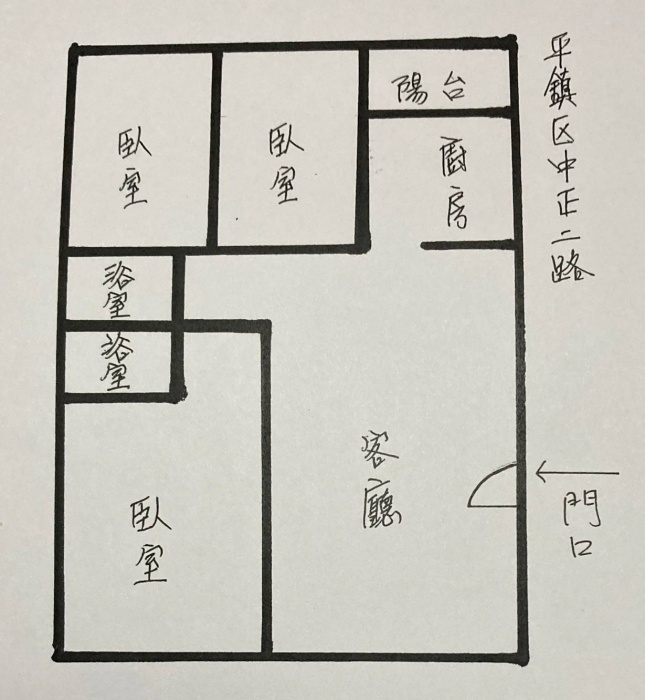 平鎮区中正二路
陽台
臥室
臥室
廚房
浴室
浴室
客廳
臥室
門口